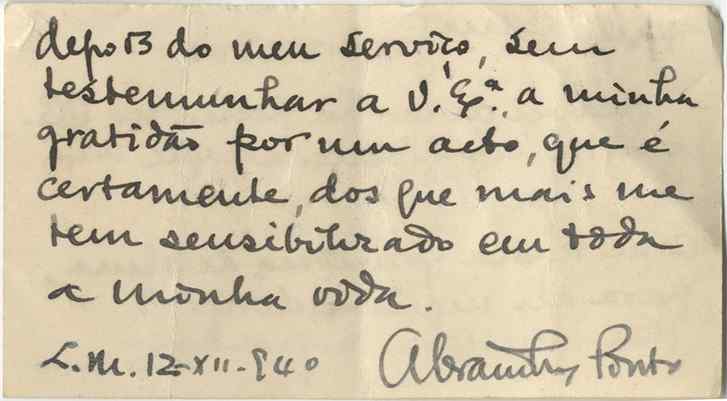 depois do meu serviço, sem
testemunhar a V. Ex.ª, a minha
gratidão por um acto, que é
certamente, dos que mais me
tem sensibilizado em toda
a minha vida.
L.M. 12-XII-940